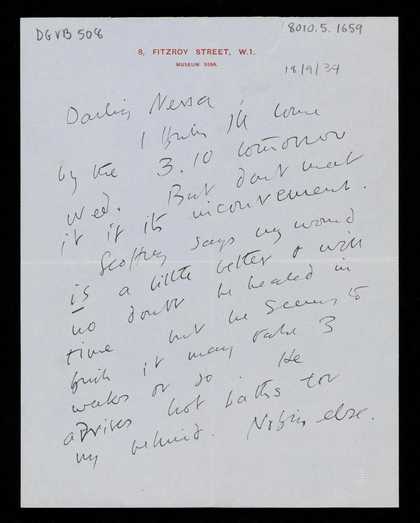 DGVB 508
8010.5.1659
8, FITZROY STREET, W.1.
MUSEUM 9359.
18/9/34
Darling Nessa
I think I'll come
by the 3.10 tomorrow
Wed. But dont meet
it if its inconvenient.
Geoffrey says my wound
is a little better & will
no doubt be healed in
time but he seems to
think it may take 3
weeks or so. He
advises hot baths for
my behind. Nothing else.